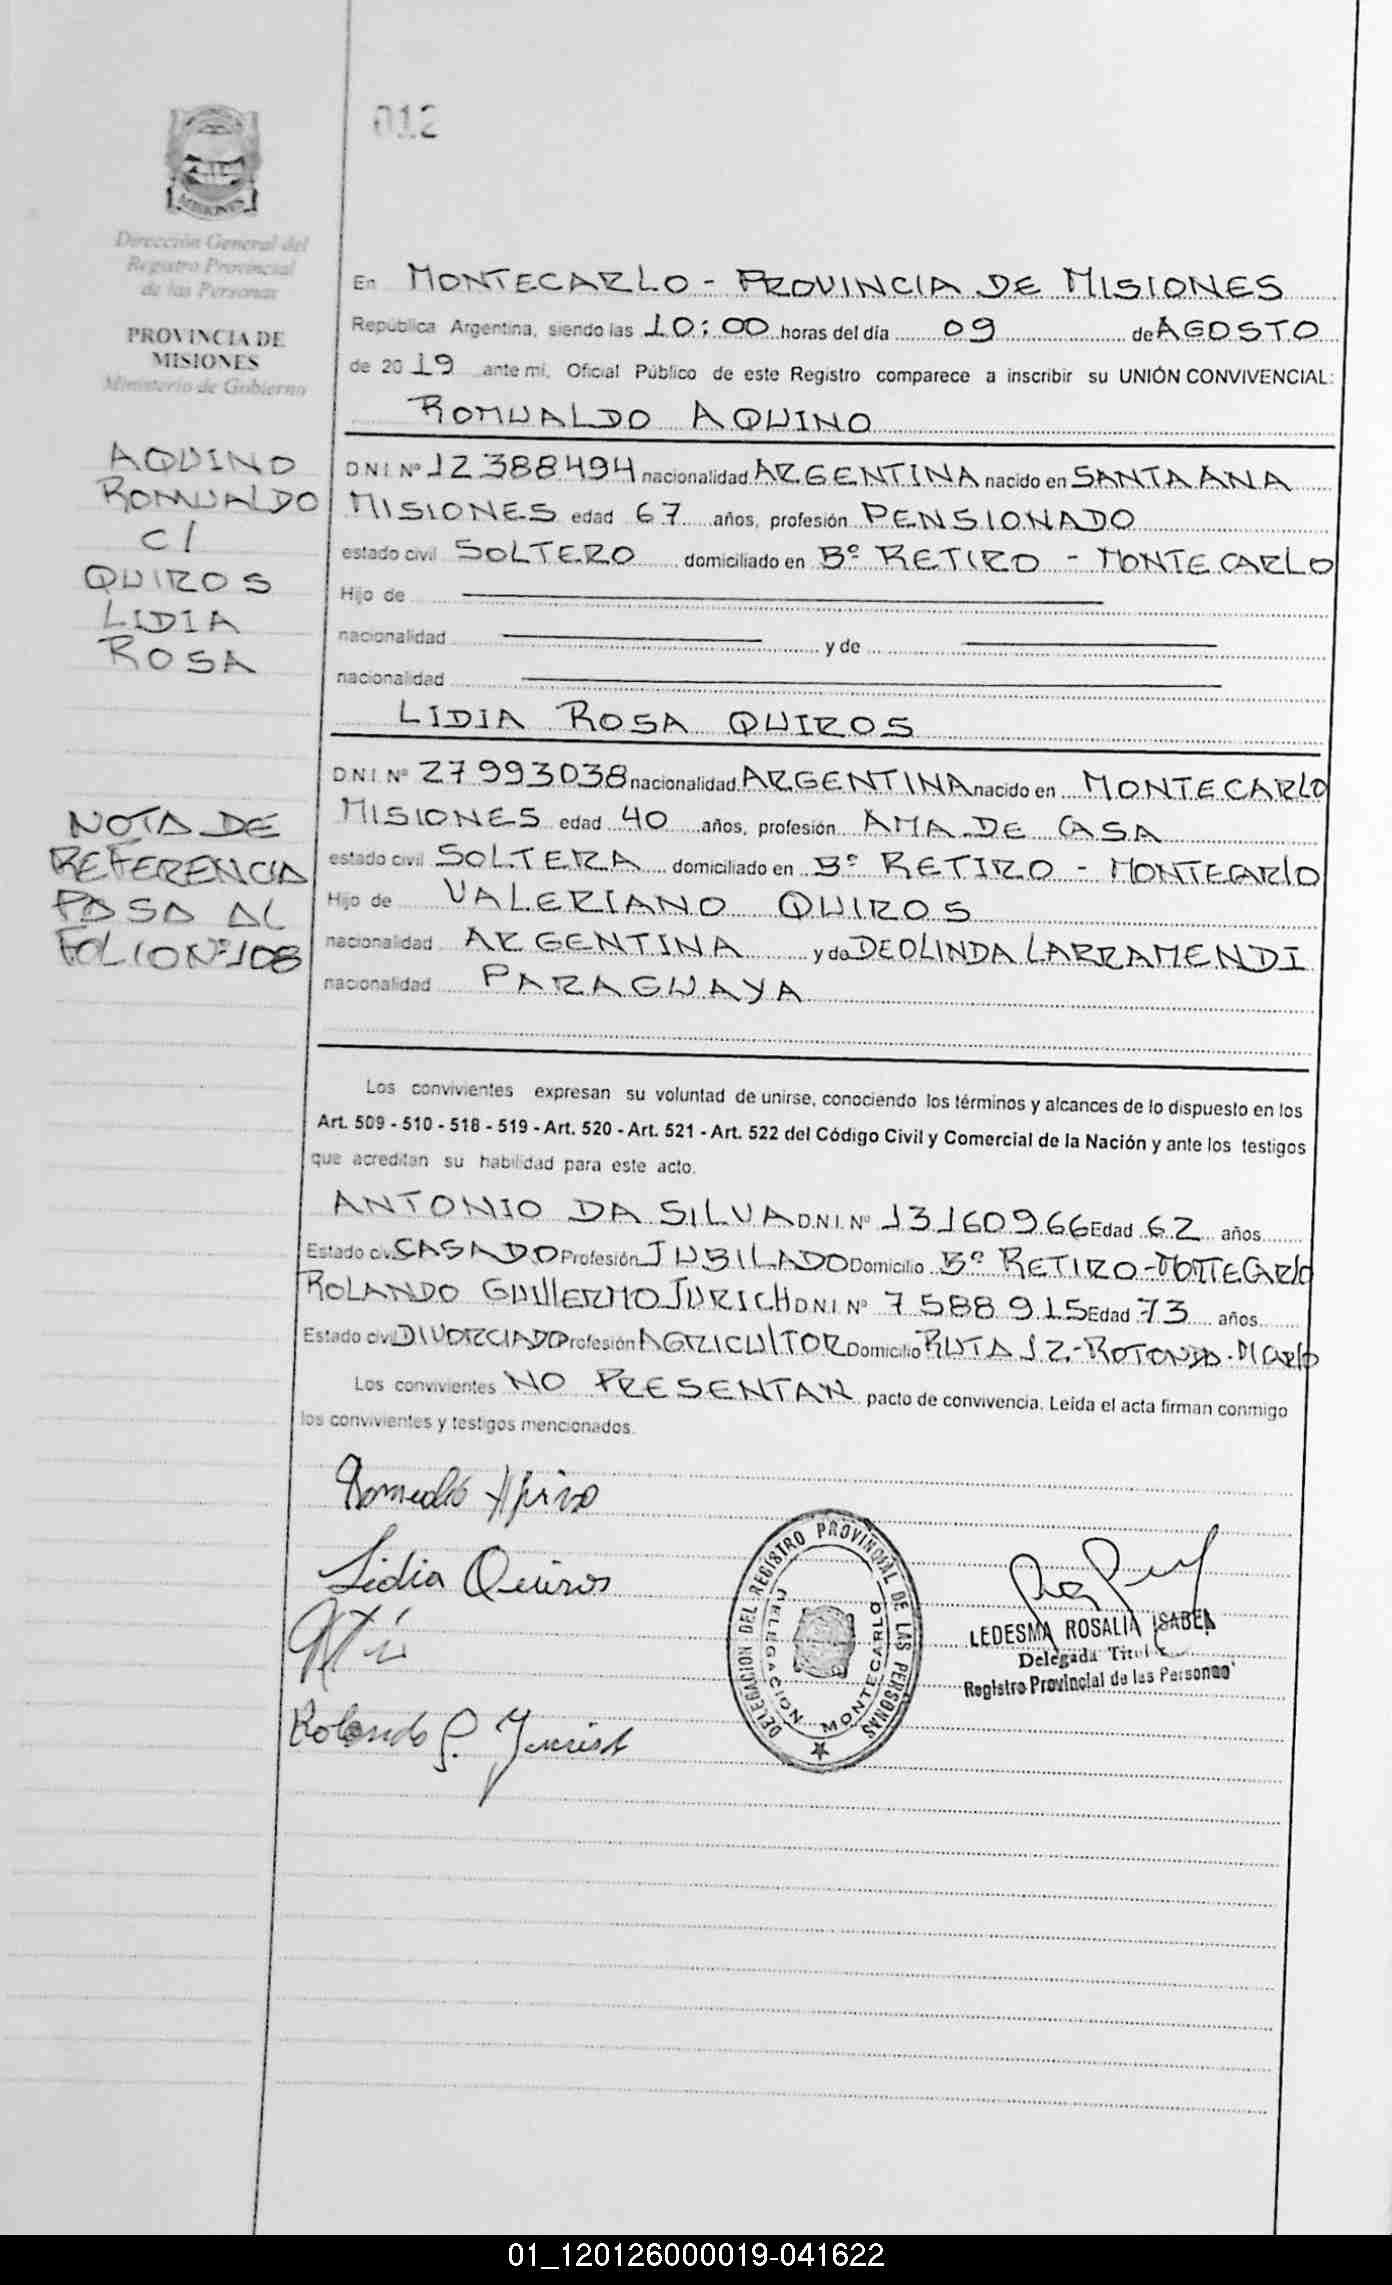 012
MISIONES
Dirección General del
Registro Provincial
de las Personas
PROVINCIA DE
MISIONES
Ministerio de Gobierno
AQUINO
ROMUALDO
C/
QUIROS
LIDIA
ROSA
NOTA DE
REFERENCIA
PASA AL
FOLIO Nº 108
En MONTECARLO - PROVINCIA DE MISIONES
República Argentina, siendo las 10:00 horas del día 09 de AGOSTO
de 2019 ante mí, Oficial Público de este Registro comparece a inscribir su UNIÓN CONVIVENCIAL:
ROMUALDO AQUINO
D.N.I. Nº 12388494 nacionalidad ARGENTINA nacido en SANTA ANA
MISIONES edad 67 años, profesión PENSIONADO
estado civil SOLTERO domiciliado en Bº RETIRO - MONTECARLO
Hijo de
nacionalidad y de
nacionalidad
LIDIA ROSA QUIROS
D.N.I. Nº 27993038 nacionalidad ARGENTINA nacido en MONTECARLO
MISIONES edad 40 años, profesión AMA DE CASA
estado civil SOLTERA domiciliado en Bº RETIRO - MONTECARLO
Hijo de VALERIANO QUIROS
nacionalidad ARGENTINA y de DEOLINDA LARRAMENDI
nacionalidad PARAGUAYA
Los convivientes expresan su voluntad de unirse, conociendo los términos y alcances de lo dispuesto en los
Art. 509 - 510 - 518 - 519 - Art. 520 - Art. 521 - Art. 522 del Código Civil y Comercial de la Nación y ante los testigos
que acreditan su habilidad para este acto.
ANTONIO DA SILVA D.N.I. Nº 13160966 Edad 62 años
Estado civil CASADO Profesión JUBILADO Domicilio Bº RETIRO - MONTECARLO
ROLANDO GUILLERMO JURICH D.N.I. Nº 7588915 Edad 73 años
Estado civil DIVORCIADO Profesión AGRICULTOR Domicilio RUTA 12 - ROTONDA - M CARLO
Los convivientes NO PRESENTAN pacto de convivencia. Leída el acta firman conmigo
los convivientes y testigos mencionados.
Romualdo Aquino
Lidia Quiros
Rolando G. Jurich
DELEGACION DEL REGISTRO PROVINCIAL DE LAS PERSONAS
DELEGACION MONTECARLO
LEDESMA ROSALIA ISABEL
Delegada Titular
Registro Provincial de las Personas
01_120126000019-041622